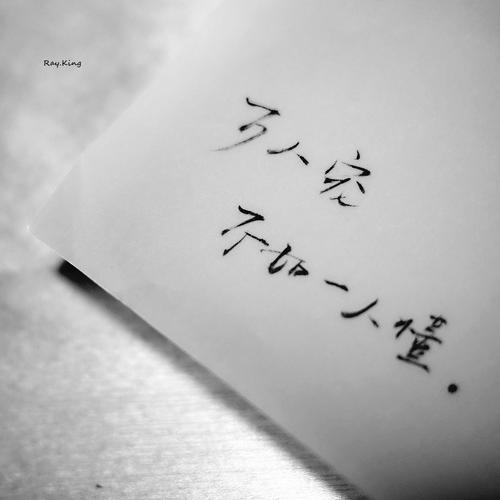 Ray.King
万人宠
不如一人懂.